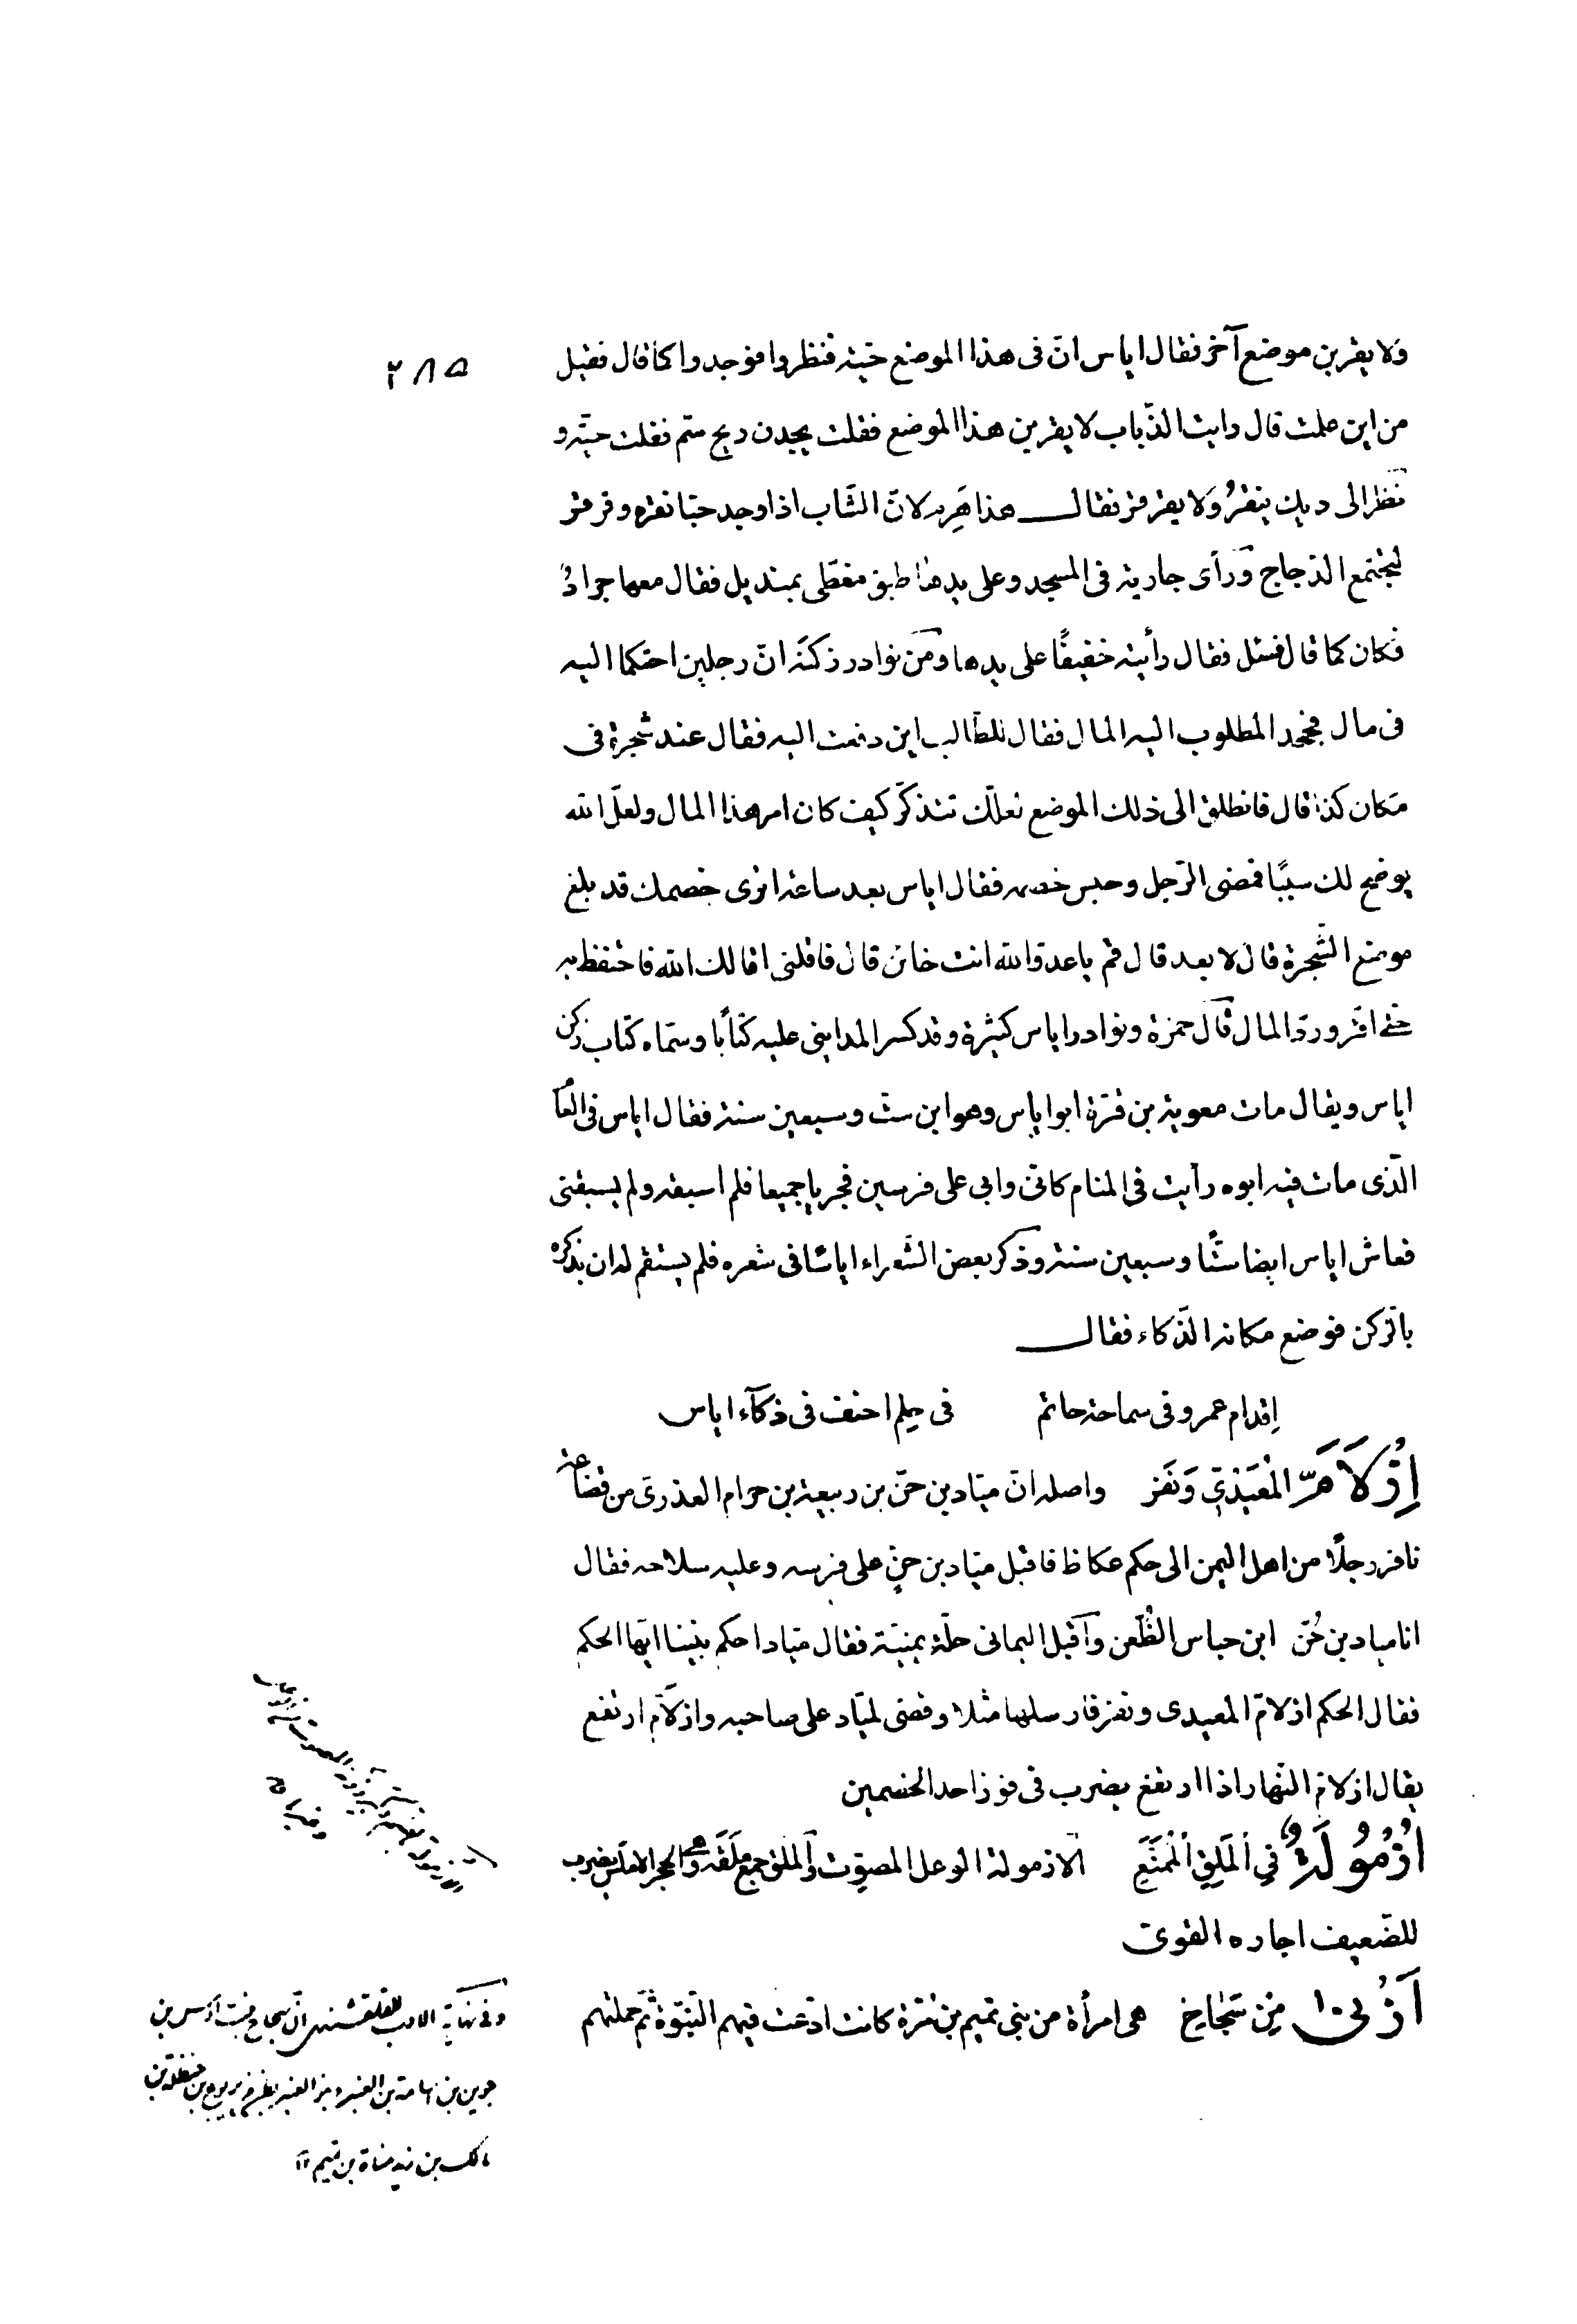 ٢٨٥
ولا يقربن موضع آخر فقال اياس انّ فى هذا الموضع حيّة فنظروا فوجدوا كما قال فقيل
من اين علمت قال رايت الذّباب لا يقربن هذا الموضع فقلت يجدن ريح سمّ فقلت حيّة و
نظر الى ديك ينقرُ وَلا يقرقر فقال هذا هَرِم لانّ الشّاب اذا وجد حبّا نقره وقرقر
ليجتمع الدّجاج وَرأى جارية فى المسجد وعلى يدها طبق مغطّى بمنديل فقال معها جرادٌ
فكان كما قال فسئل فقال رأيته خفيفًا على يدها ومن نوادر زكنَه انّ رجلين احتكما اليه
فى مال فجحد المطلوب اليه المال فقال للطّالب اين دفعت اليه فقال عند شجرة فى
مكان كذا قال فانطلق الى ذلك الموضع لعلّك تتذكّر كيف كان امر هذا المال ولعلّ الله
يوضح لك سببًا فمضى الرّجل وحبس خصمه فقال اياس بعد ساعة اترى خصمك قد بلغ
موضع الشّجرة قال لا بعد قال قم ياعدوّ الله انت خائن قال فاقلنى اقالك الله فاحتفظ به
حتى اقرّ وردّ المال قال حمزة ونوادر اياس كثيرة وقد كسر المداينى عليه كتابًا وسمّاه كتاب زكن
اياس ويقال مات معوية بن قرّة ابو اياس وهو ابن ستّ وسبعين سنة فقال اياس فى العام
الّذى مات فيه ابوه رأيت فى المنام كانّى وابى على فرسين فجريا جميعا فلم اسبقه ولم يسبقنى
فعاش اياس ايضا ستًّا وسبعين سنة وذكر بعض الشّعراء اياسًا فى شعره فلم يستقم له ان يذكره
بالزّكن فوضع مكانه الذّكاء فقال
اِقدام عمرو فى سماحة حاتم فى حِلم احنف فى ذكآء اياس
اِزْلَاَمَّ الْمُعَيْدِيّ وَنَفَر واصله انّ ميّاد بن حنّ بن ربيعة بن حرام العذرىّ من قضاعة
نافر رجلًا من اهل اليمن الى حكم عكاظ فاقبل ميّاد بن حنّ على فرسه وعليه سلاحه فقال
انا مياد بن حُنّ ابن حباس الظُّعن وأقبل اليمانى حلّة يمنيّة فقال ميّاد احكم بيننا ايّها الحكم
فقال الحكم ازلامّ المعيدى ونفر فارسلها مثلا وقضى لميّاد على صاحبه وازلَأمّ ارتفع
يقال ازلامّ النّهار اذا ارتفع يضرب فى فوز احد الخصمين
اُزْمُولَةٌ فِي الْمَلَقِ الْمُمَنَّعِ الازمولة الوعل المصوّت والملق جمع مَلَقَة وهى الحجر الاملس يضرب
للضّعيف اجاره القوىّ
اَزْنىٰ مِنْ سَجَاحِ هى امرأة من بنى تميم بن مرّة كانت ادّعت فيهم النّبوّة ثمّ حملتهم
وفى نهاية الادب للقلقشندى انّ سجاح بنت أوس بن
جوين بن اسامة بن العنبر وبنو العنبر بطن من يربوع بن حنظلة بن
مالك بن زيد مناة بن تميم ١٢